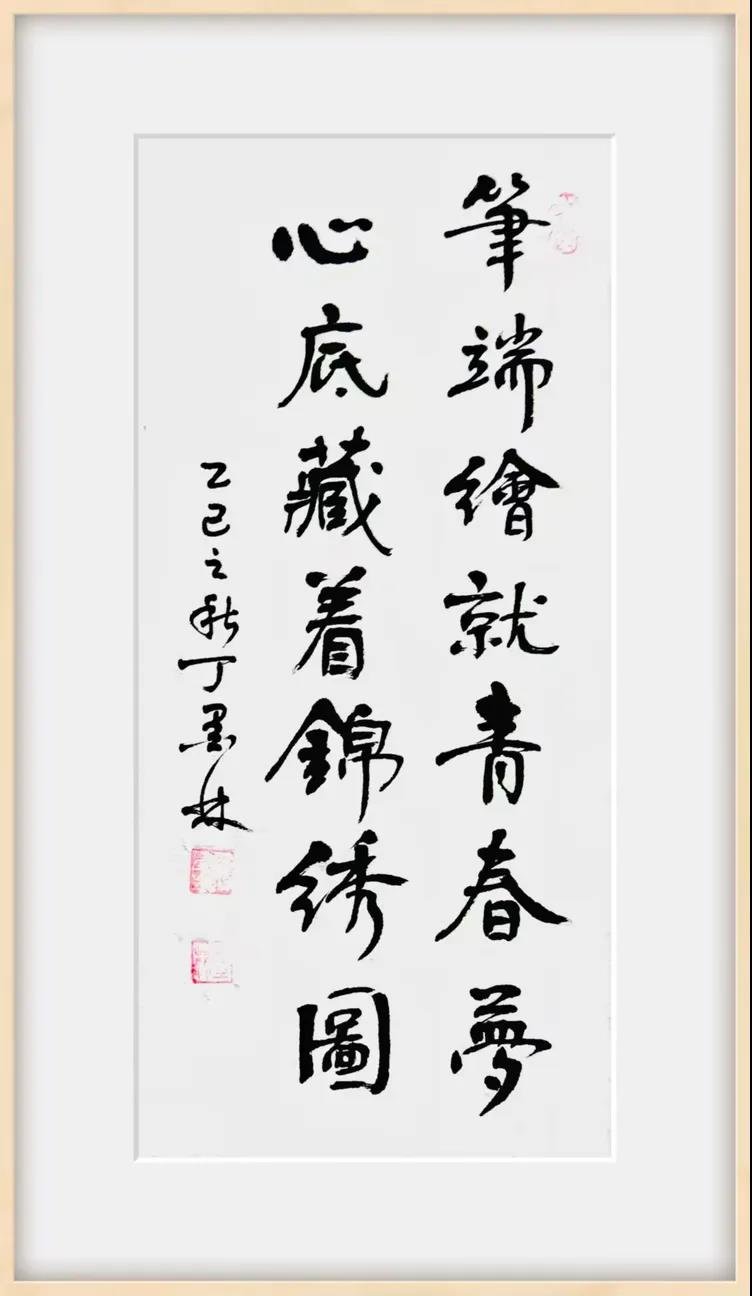 筆端繪就青春夢
心底藏着錦綉圖
乙巳之秋丁墨林